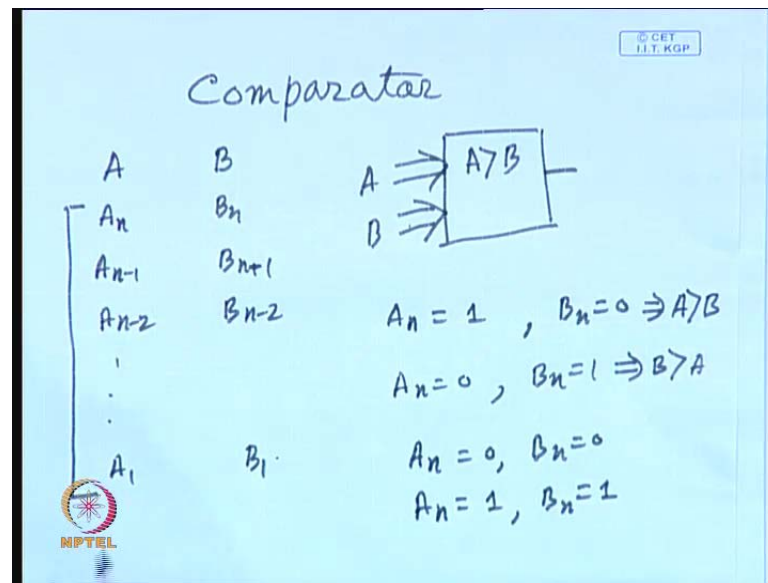 © CET
I.I.T. KGP
Comparator
A B
An Bn
An-1 Bn+1
An-2 Bn-2
A1 B1.
A
B
A>B
An = 1 , Bn=0 ⇒ A>B
An=0 , Bn=1 ⇒ B>A
An = 0, Bn=0
An = 1, Bn=1
NPTEL